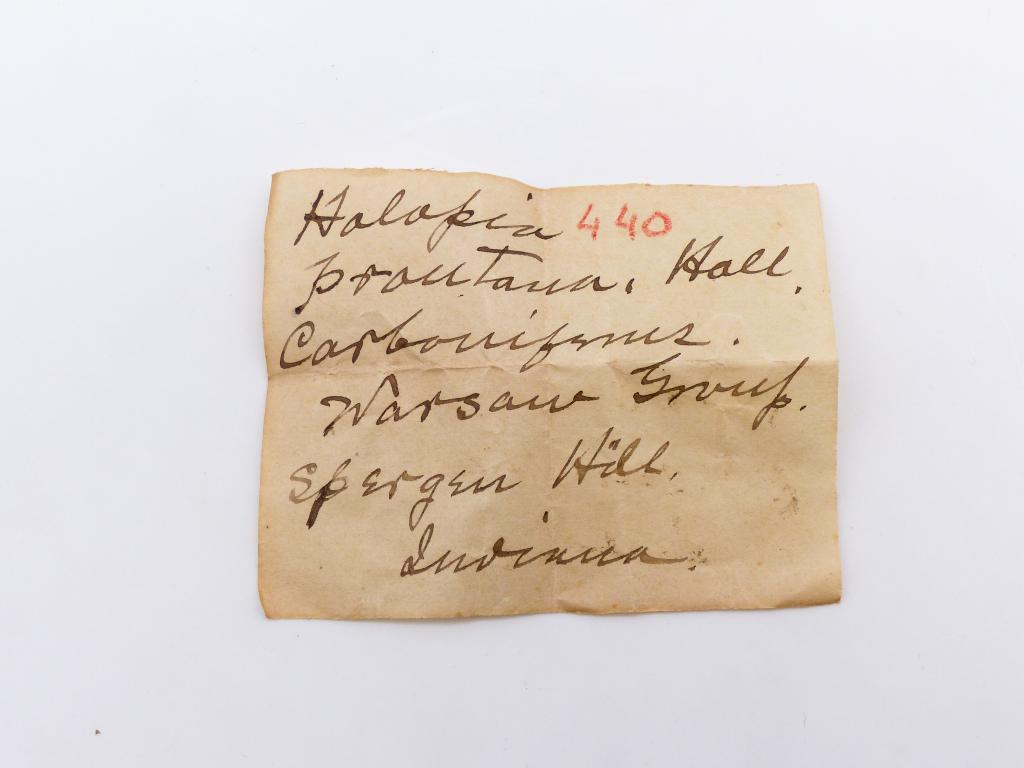 Holopia 440
proutana. Hall.
Carboniferus.
Warsaw Group.
Spergen Hill.
Indiana.